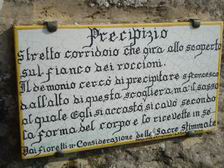 Precipizio
Stretto corridoio che gira allo scoperto
sul fianco dei roccioni.
Il demonio cercò di precipitare S. Francesco
dall'alto di questa scogliera, ma il sasso
al quale Egli si accostò si cavò secondo
la forma del corpo e lo ricevette in se
Dai fioretti: IV Considerazione delle Sacre Stimmate